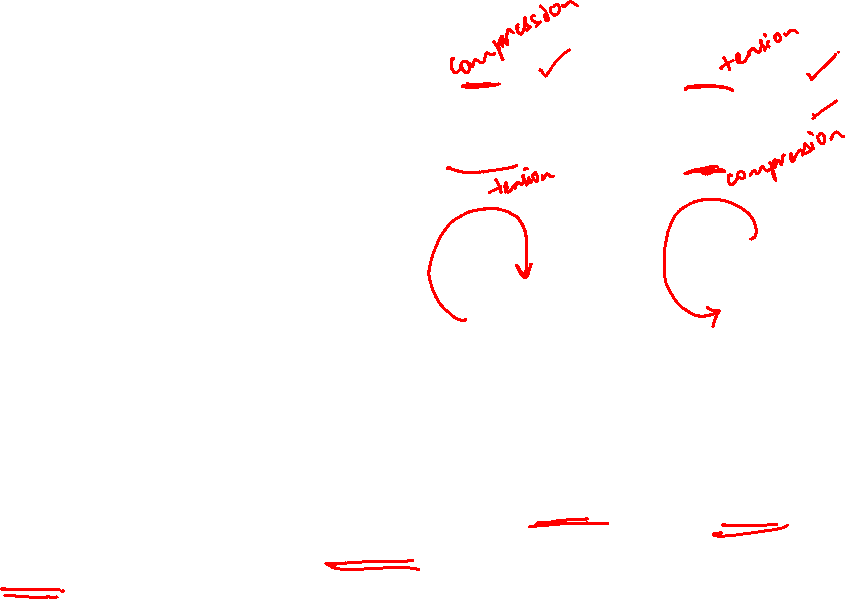 compression
tension
tension
compression